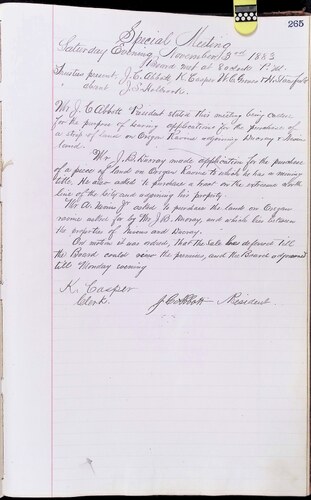 265
Special Meeting
Saturday Evening November 3rd 1883
Board met at 8 oclock P.M.
Trustees present, J. C. Abbott K. Casper W. C. Greves & H.
absent J. S. Holbrooke.
Mr J. C. Abbott President stated this meeting being called
for the purpose of hearing applications for the purchase of
a strip of land on Oregon Ravine adjoining Dorsey &
land.
Mr J. B. Dorsay made application for the purchase
of a piece of land on Oregon Ravine to which he has a mining
title. He also asked to purchase a on the extreme North
line of the adjoining his property
Mr A. Jr asked to purchase the land on Oregon
ravine asked for by Mr J. B. Dorsay, and which lies between
the properties of and Dorsay.
On motion it was ordered, that the Sale be deferred till
the Board could view the premises, and the Board adjourned
till Monday evening
K. Casper
Clerk.
J C Abbott President